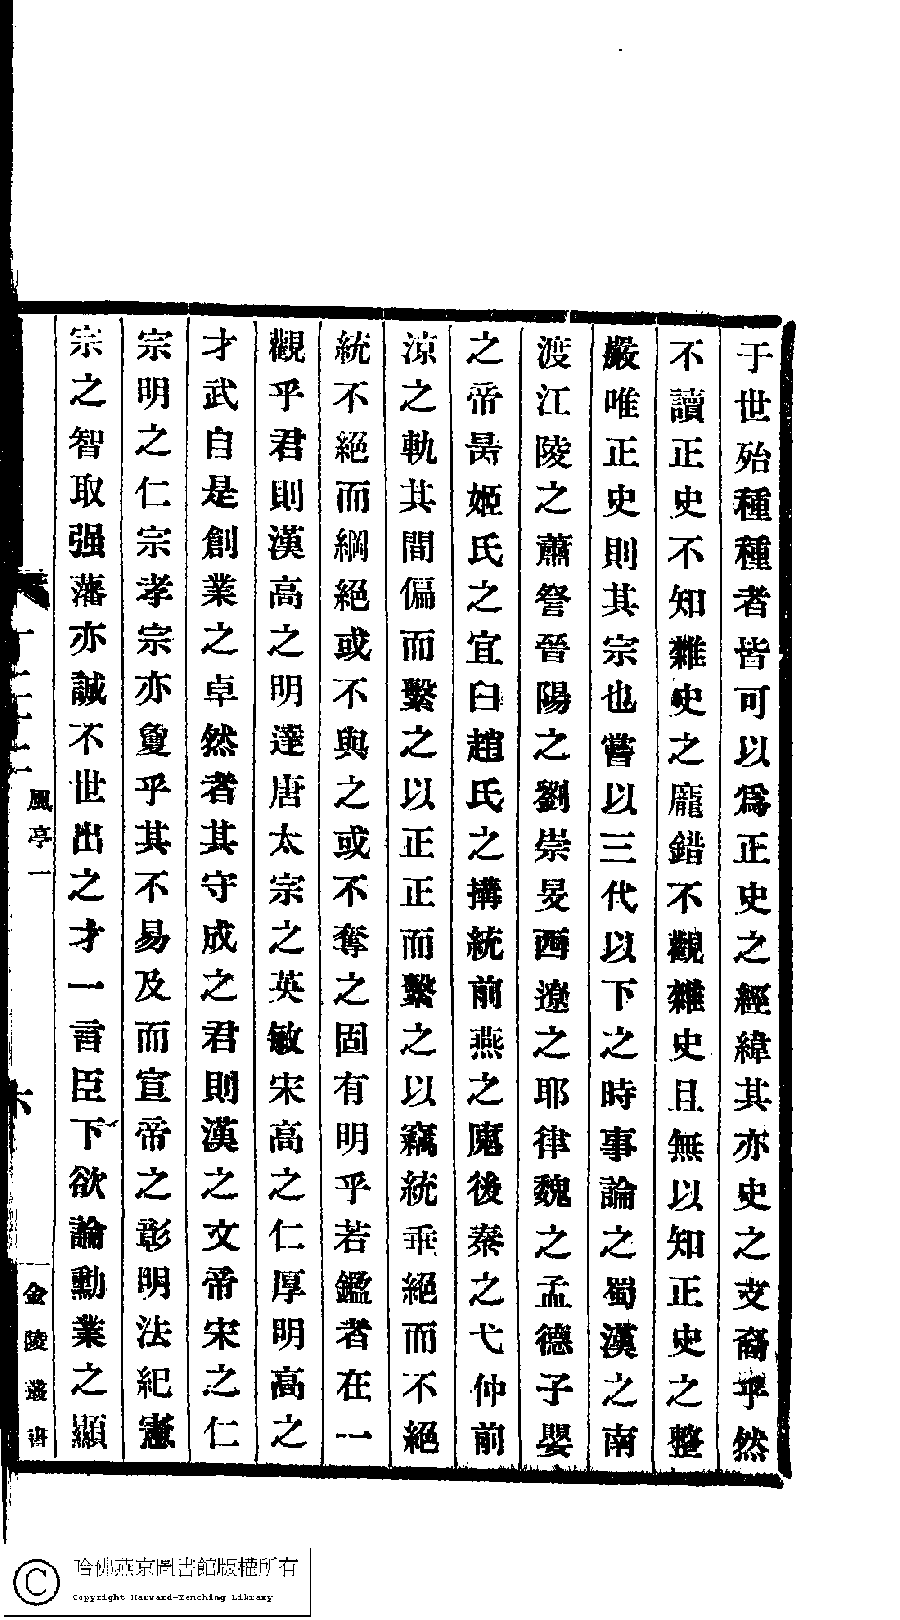 于世殆種種者皆可以爲正史之經緯其亦史之支裔乎然
不讀正史不知雜史之龐錯不觀雜史且無以知正史之整
嚴唯正史則其宗也嘗以三代以下之時事論之蜀漢之南
渡江陵之蕭詧晉陽之劉崇旻西遼之耶律魏之孟德子嬰
之帝昺姬氏之宜臼趙氏之搆統前燕之廆後秦之弋仲前
涼之軌其間偏而繫之以正正而繫之以竊統垂絕而不絕
統不絕而綱絕或不與之或不奪之固有明乎若鑑者在一
觀乎君則漢高之明達唐太宗之英敏宋高之仁厚明高之
才武自是創業之卓然者其守成之君則漢之文帝宋之仁
宗明之仁宗孝宗亦敻乎其不易及而宣帝之彰明法紀憲
宗之智取强藩亦誠不世出之才一言臣下欲論勳業之顯
風亭一
六
金陵叢書
哈佛燕京圖書館版權所有
Copyright Harvard-Yenching Library